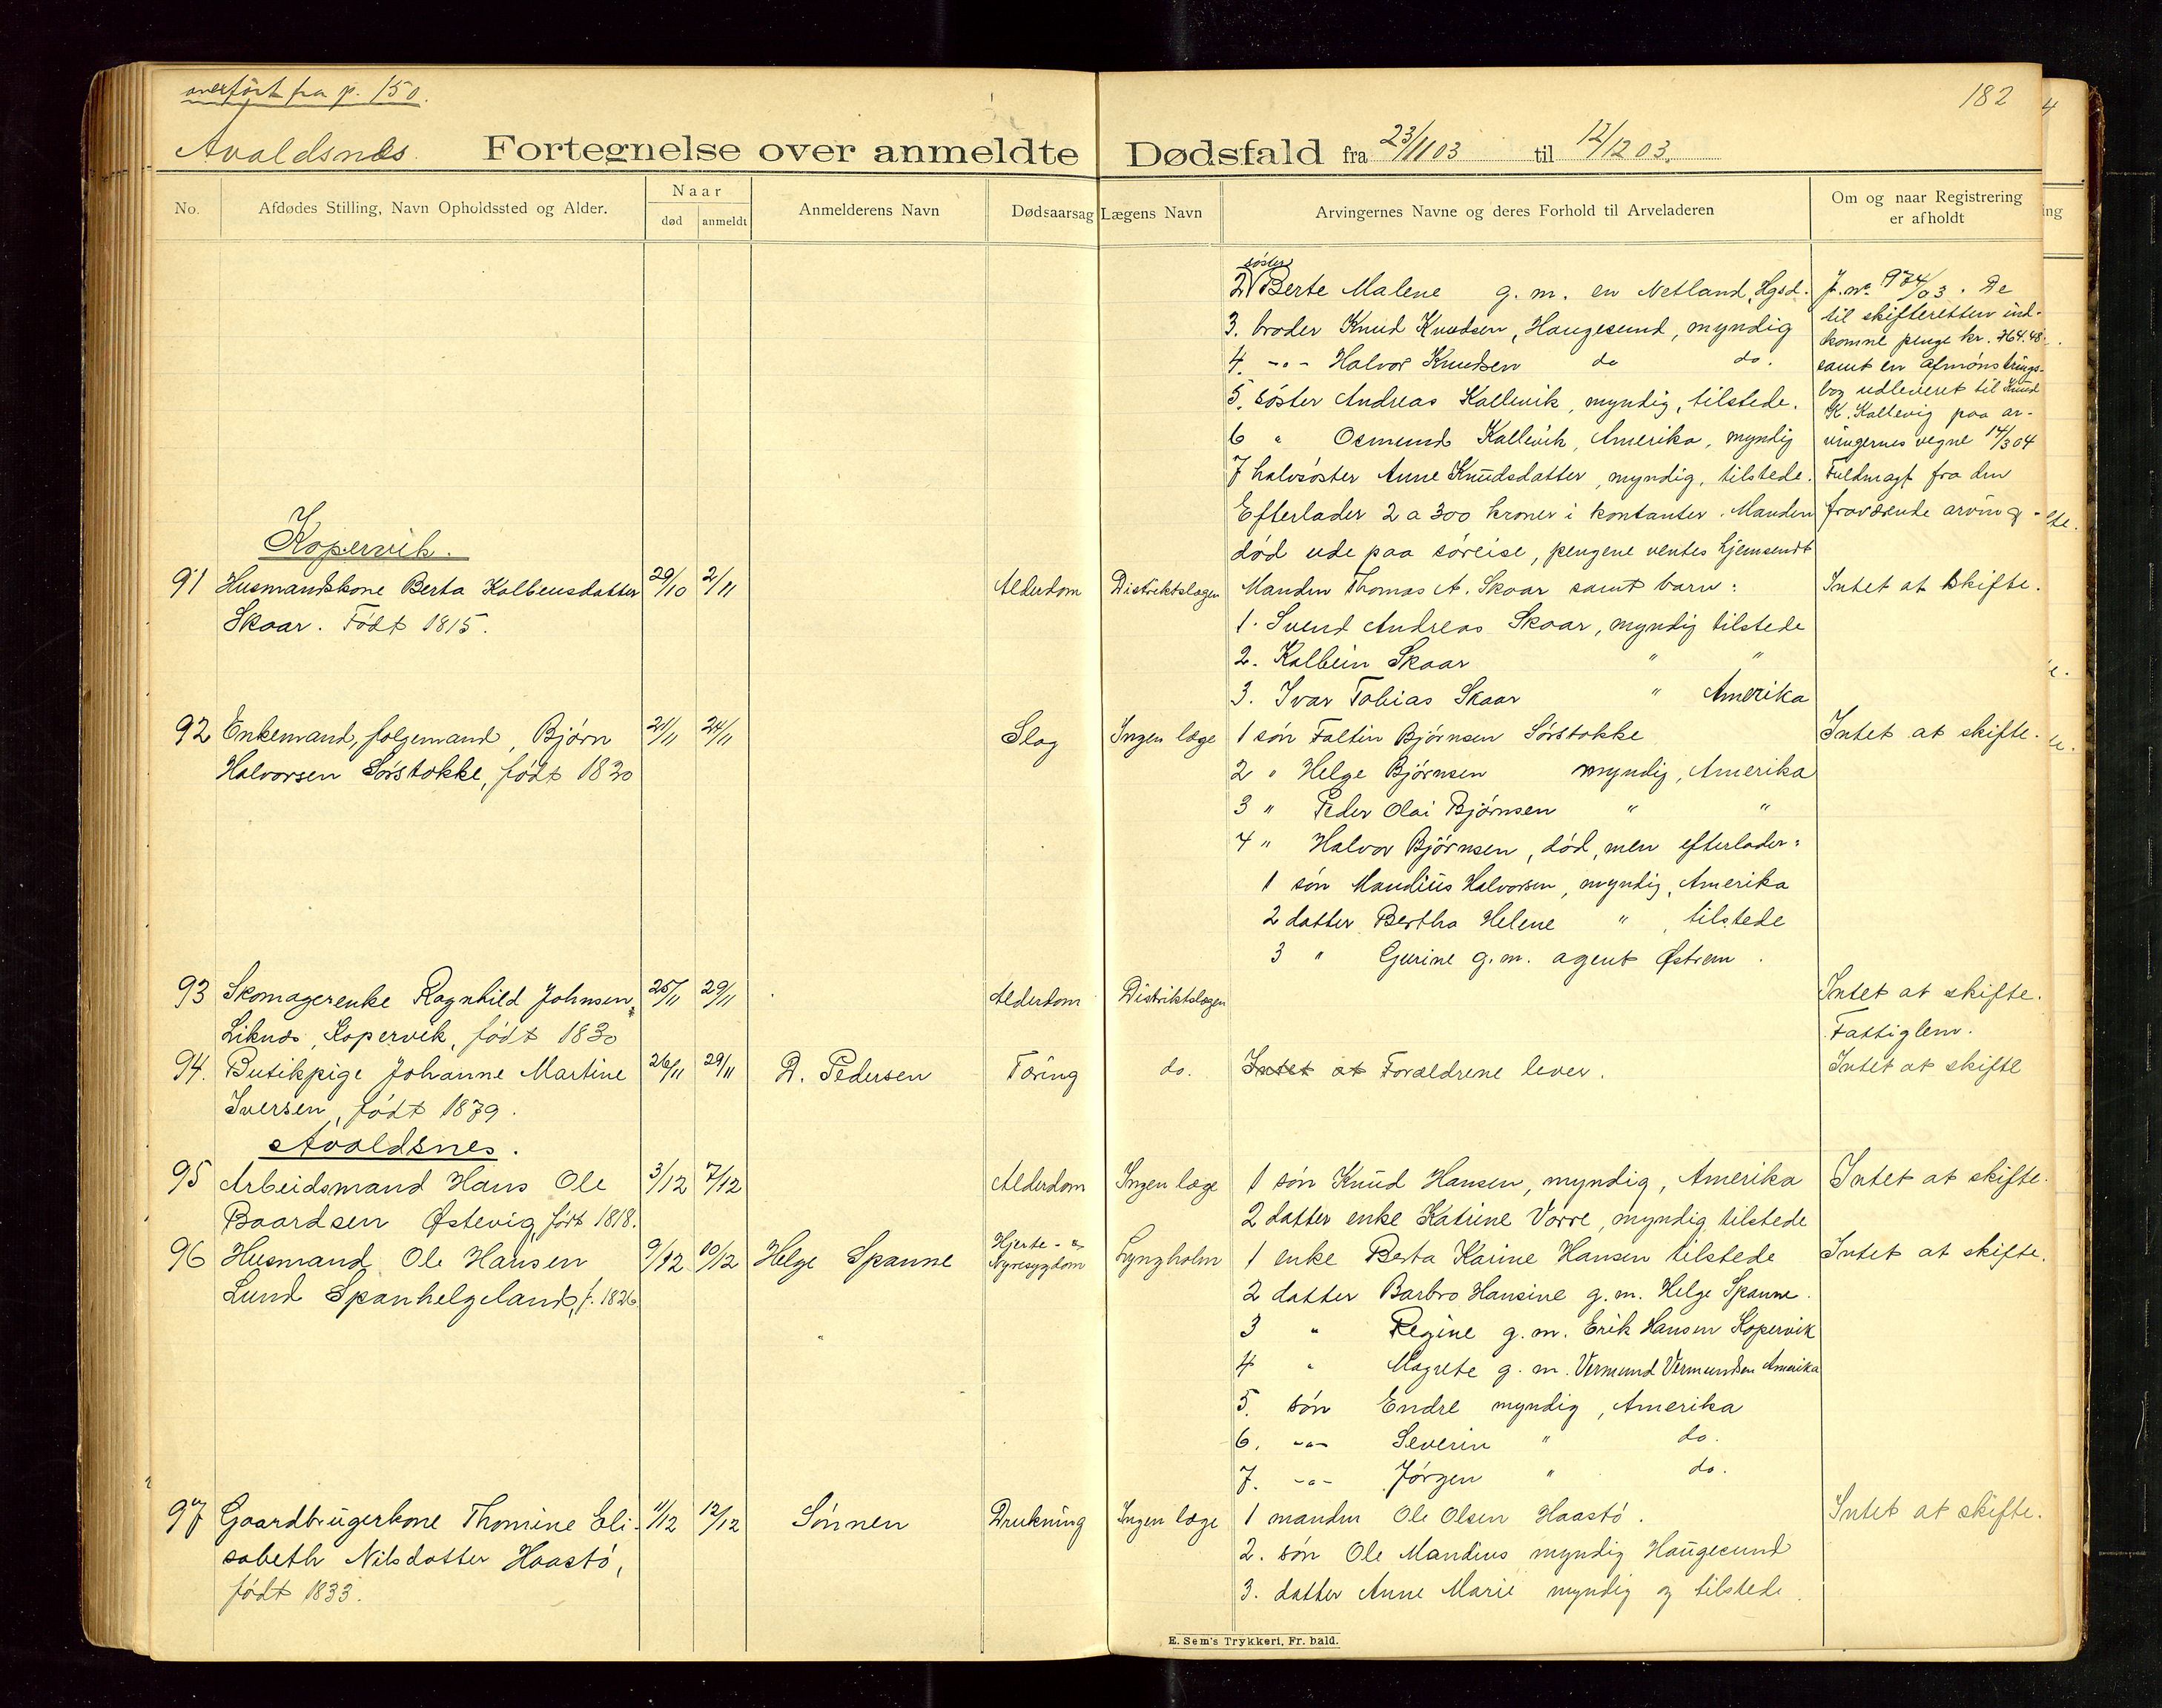 overført fra p. 150.
182
Avaldsnes. Fortegnelse over anmeldte Dødsfald fra 23/11 03 til 12/12 03.
No.
Afdødes Stilling, Navn Opholdssted og Alder.
Naar
død
anmeldt
Anmelderens Navn
Dødsaarsag
Lægens Navn
Arvingernes Navne og deres Forhold til Arveladeren
Om og naar Registrering
er afholdt
søster
2 Berte Malene g. m. en Netland, Hgsd.
3. broder Knud Knudsen, Haugesund, myndig
4. -"- Halvor Knudsen do do.
5. søster Andreas Kallevik, myndig, tilstede.
6 " Osmund Kallevik, Amerika, myndig
7 halvsøster Anne Knudsdatter, myndig, tilstede.
Efterlader 2 a 300 kroner i kontanter. Manden
død ude paa søreise, pengene ventes hjemsendt
J. no. 974/03. De
til skifteretten ind-
komne penge kr. 764.48
samt en afmønstrings-
bog udleveret til Knud
K. Kallevig paa ar-
vingernes vegne 14/3 04
Fuldmagt fra den
fraværende arving
Kopervik.
91 Husmandskone Berta Kolbensdatter 29/10 2/11 Alderdom Distriktslægen Manden Thomas A. Skaar samt barn: Intet at skifte.
Skaar. Født 1815. 1. Svend Andreas Skaar, myndig tilstede
2. Kolbein Skaar " "
3. Ivar Tobias Skaar " Amerika
92 Enkemand, folgemand, Bjørn 21/11 24/11 Slag Ingen læge 1 søn Faltin Bjørnsen Sørstokke Intet at skifte.
Halvorsen Sørstokke, født 1820 2 " Helge Bjørnsen myndig, Amerika
3 " Peder Olai Bjørnsen " "
4 " Halvor Bjørnsen, død, men efterlader:
1 søn Mandius Halvorsen, myndig, Amerika
2 datter Bertha Helene " , tilstede
3 " Gurine g. m. agent Østrem.
93 Skomagerenke Ragnhild Johnsen 25/11 29/11 Alderdom Distriktslægen Intet at skifte.
Liknes, Kopervik, født 1830 Fattiglem.
94. Butikpige Johanne Martine 26/11 29/11 D. Pedersen Tæring do. Intet at Forældrene lever. Intet at skifte
Iversen, født 1879.
Avaldsnes.
95 Arbeidsmand Hans Ole 3/12 7/12 Alderdom Ingen læge 1 søn Knud Hansen, myndig, Amerika Intet at skifte.
Baardsen Østevig, født 1818. 2 datter enke Katrine Vorre, myndig tilstede
96 Husmand Ole Hansen 9/12 10/12 Helge Spanne Hjerte- & Nyresygdom Lyngholm 1 enke Berta Karine Hansen tilstede Intet at skifte.
Lund Spanhelgeland, f. 1826 2 datter Barbro Hansine g. m. Helge Spanne.
3 " Regine g. m. Erik Hansen Kopervik
4 " Magrete g. m. Vermund Vermundsen Amerika
5. søn Endre myndig, Amerika
6. -"- Severin " do.
7. -"- Jørgen " do.
97 Gaardbrugerkone Thomine Eli- 11/12 12/12 Sønnen Drukning Ingen læge 1 manden Ole Olsen Haastø. Intet at skifte.
sabeth Nilsdatter Haastø, 2. søn Ole Mandius myndig Haugesund
født 1833. 3. datter Anne Marie myndig og tilstede.
E. Sem's Trykkeri, Fr. hald.